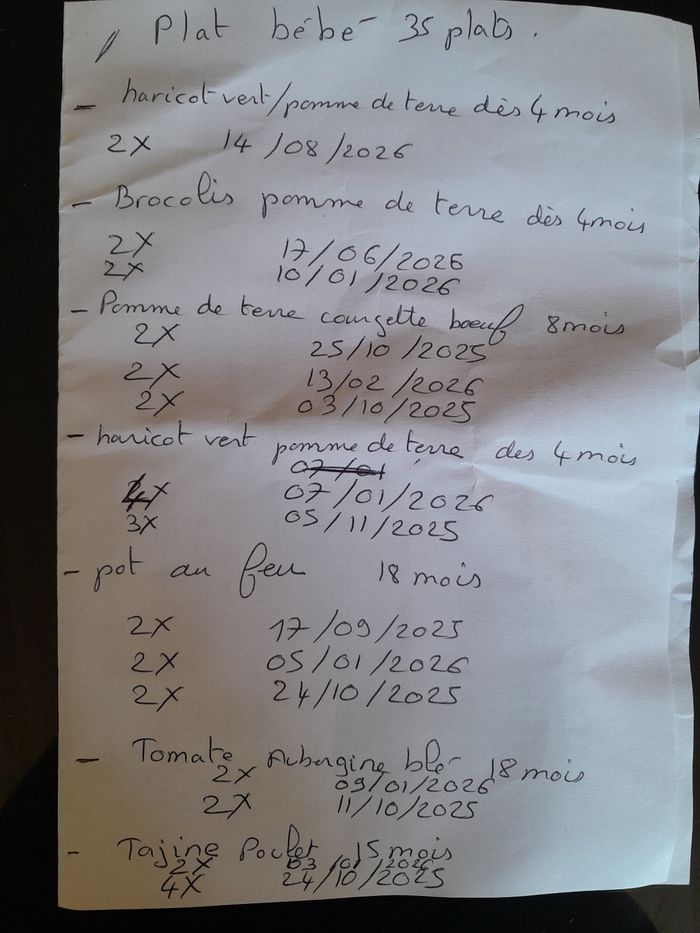 Plat bébé 35 plats.
- haricot vert/pomme de terre dès 4 mois
2X 14/08/2026
- Brocolis pomme de terre dès 4mois
2X 17/06/2026
2X 10/01/2026
- Pomme de terre courgette bœuf 8mois
2X 25/10/2025
2X 13/02/2026
2X 03/10/2025
- haricot vert pomme de terre des 4 mois
07/01
4X 07/01/2026
3X 05/11/2025
- pot au feu 18 mois
2X 17/09/2025
2X 05/01/2026
2X 24/10/2025
- Tomate Aubergine blé 18 mois
2X 09/01/2026
2X 11/10/2025
- Tajine Poulet 15 mois
2X 03/01/2026
4X 24/10/2025